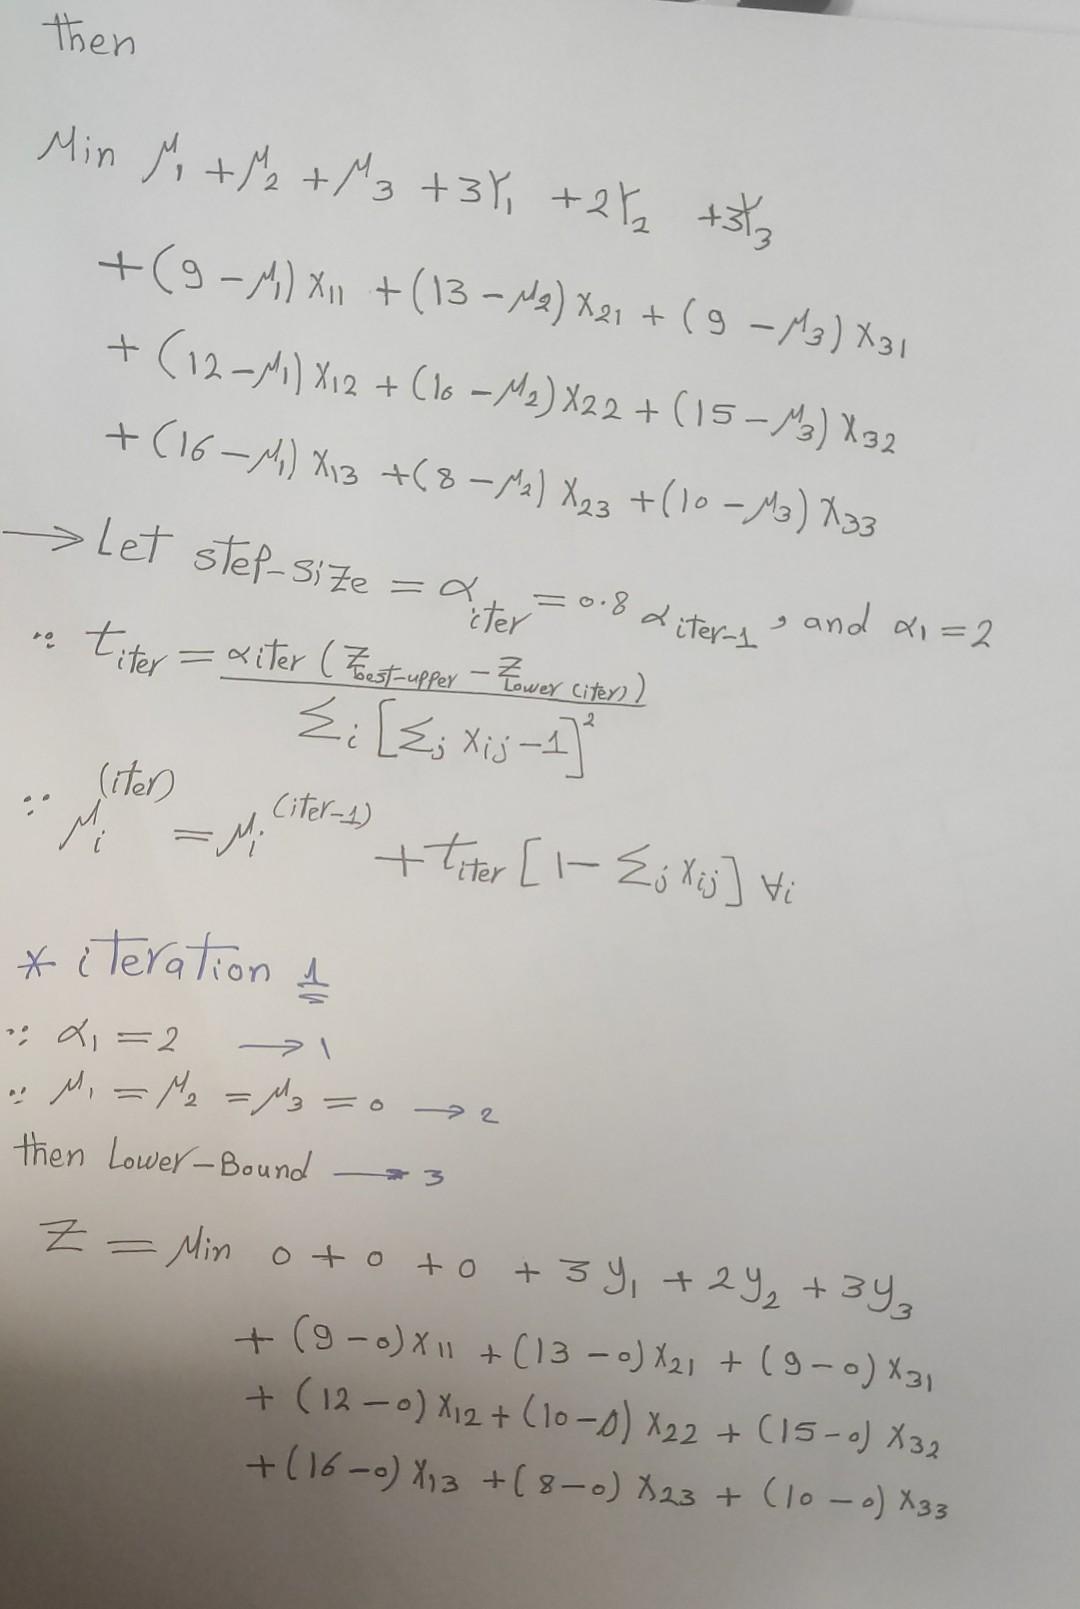 then
Min μ₁ + μ₂ + μ₃ + 3Y₁ + 2Y₂ + 3Y₃
+ (9 - μ₁) X₁₁ + (13 - μ₂) X₂₁ + (9 - μ₃) X₃₁
+ (12 - μ₁) X₁₂ + (10 - μ₂) X₂₂ + (15 - μ₃) X₃₂
+ (16 - μ₁) X₁₃ + (8 - μ₂) X₂₃ + (10 - μ₃) X₃₃
→ Let step-size = α_iter = 0.8 α_iter-1 , and α₁ = 2
∵ t_iter = α_iter (Z_best-upper - Z_Lower (iter)) / Σᵢ [Σⱼ Xᵢⱼ - 1]²
∵ μᵢ^(iter) = μᵢ^(iter-1) + t_iter [1 - Σⱼ Xᵢⱼ] ∀i
* iteration 1
∵ α₁ = 2 → 1
∵ μ₁ = μ₂ = μ₃ = 0 → 2
then Lower-Bound → 3
Z = Min 0 + 0 + 0 + 3y₁ + 2y₂ + 3y₃
+ (9 - 0) X₁₁ + (13 - 0) X₂₁ + (9 - 0) X₃₁
+ (12 - 0) X₁₂ + (10 - 0) X₂₂ + (15 - 0) X₃₂
+ (16 - 0) X₁₃ + (8 - 0) X₂₃ + (10 - 0) X₃₃